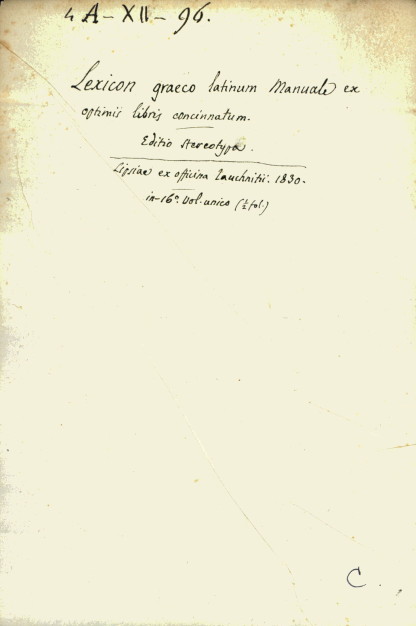 4 A-XII-96.
Lexicon graeco latinum Manuale ex
optimis libris concinnatum.
Editio stereotypa.
Lipsiae ex officina Tauchnitii. 1830.
in-16º. Vol. unico (½ fol.)
C.